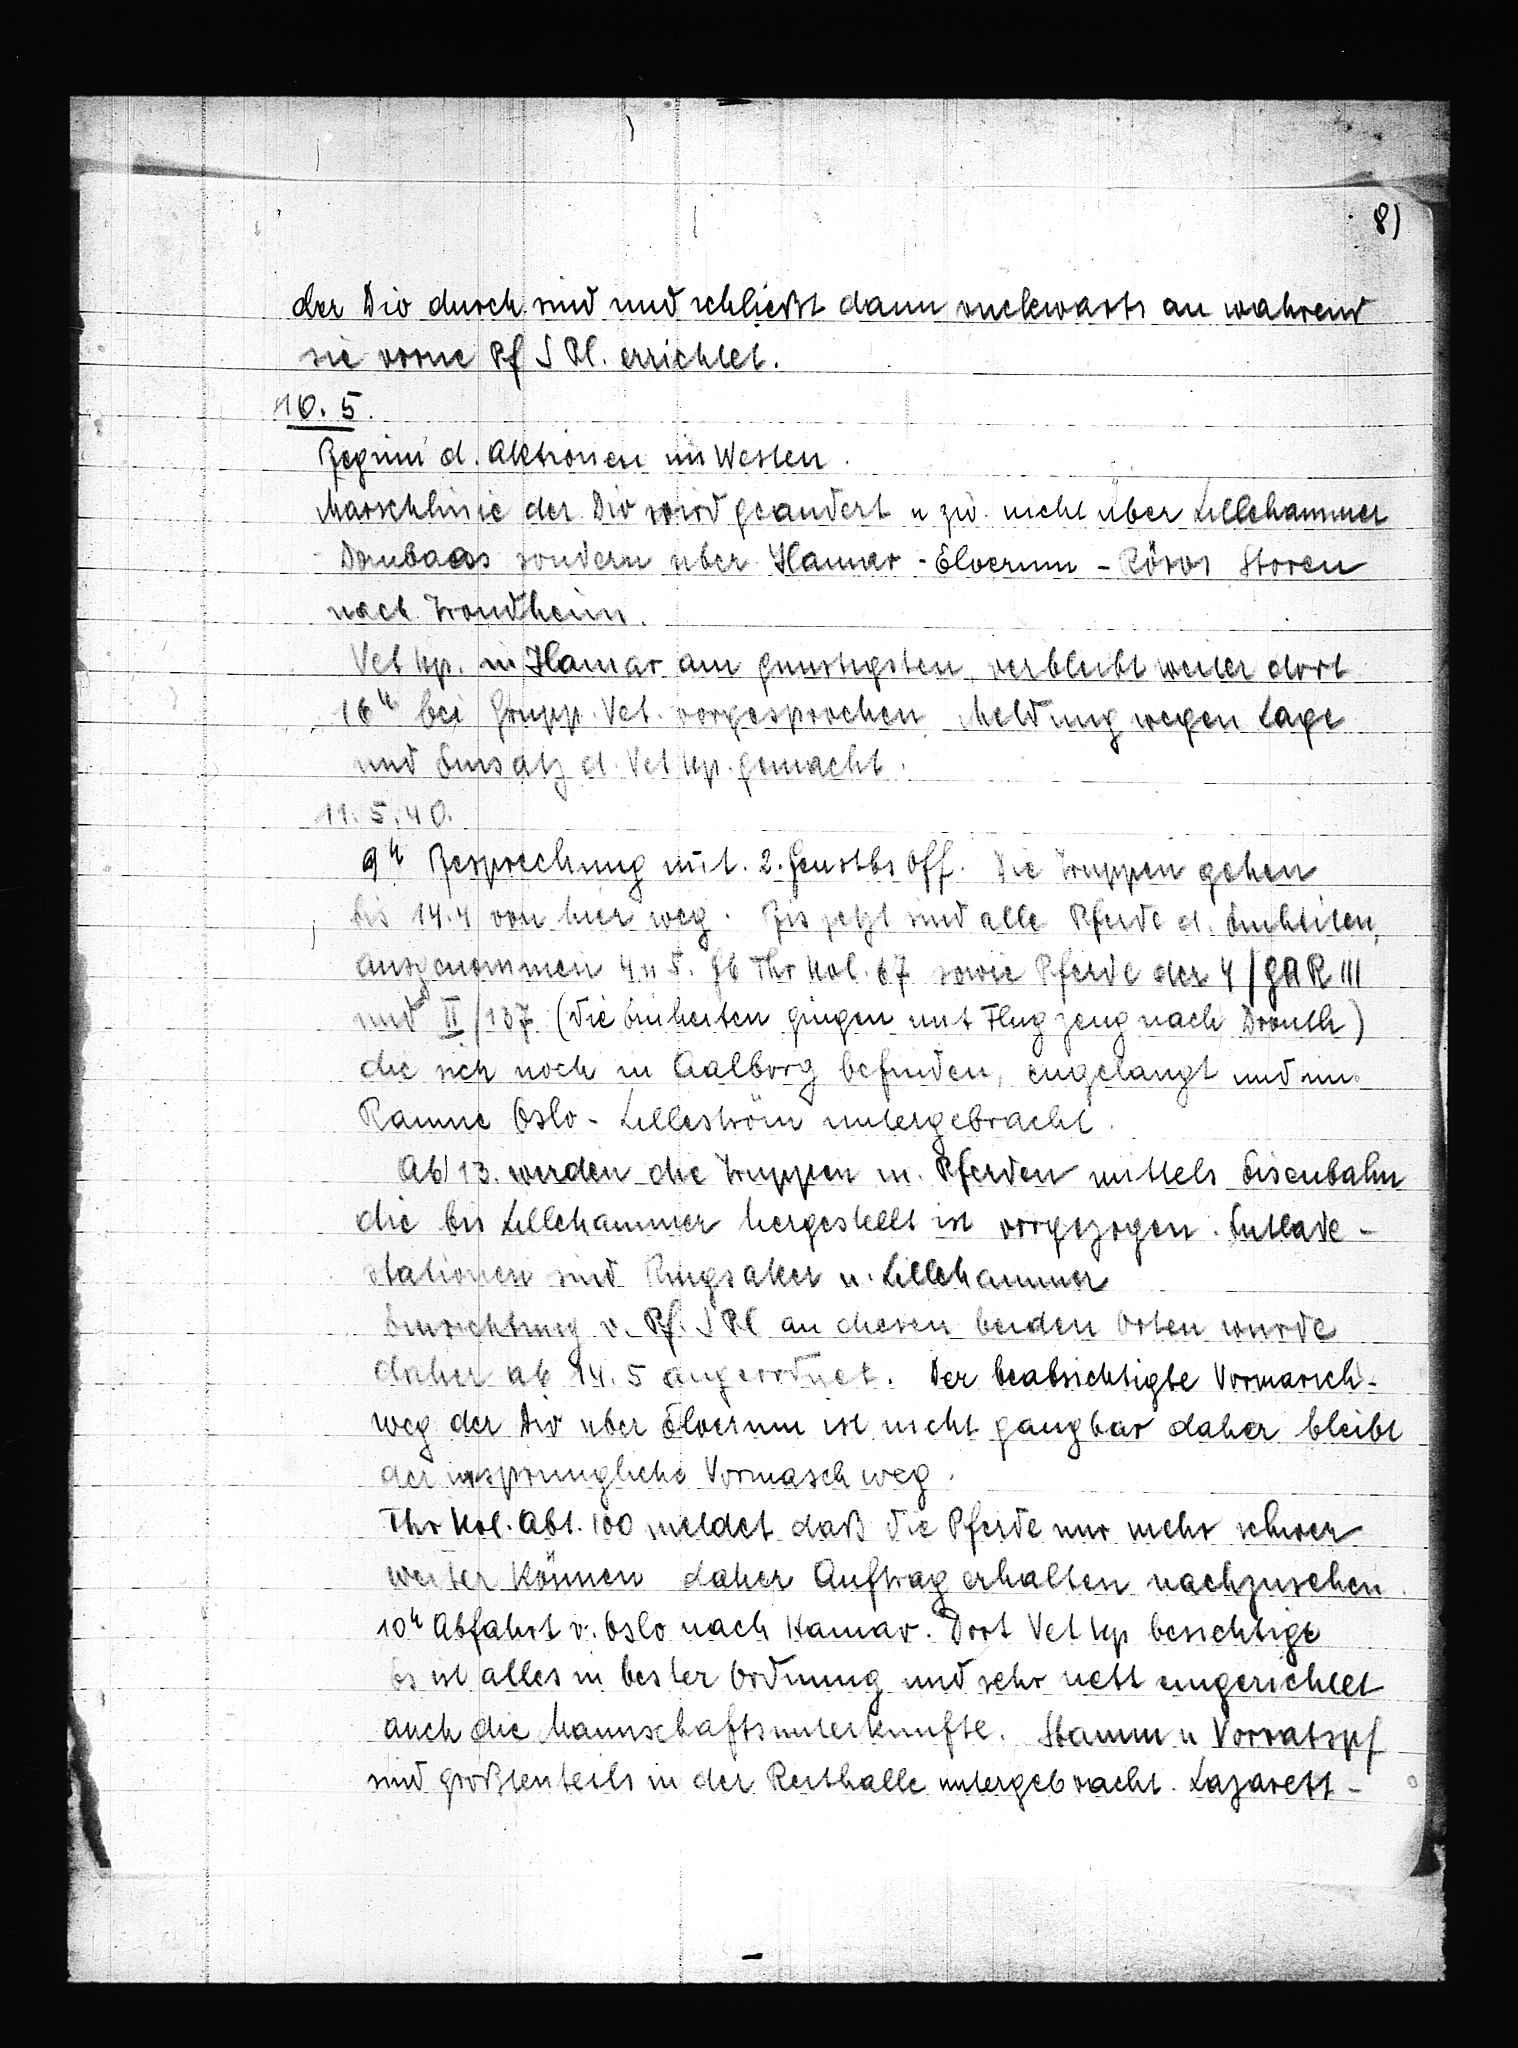 8)
der Div durch sind und schließt dann ruckwarts an wahrend
sie vorne Pf S Pl. errichtet.
10. 5.
Beginn d. Aktionen im Westen.
Marschlinie der Div wird geandert u zw. nicht über Lillehammer
Dombaas sondern uber Hamar - Elverum - Röros Storen
nach Trondheim.
Vet Kp. in Hamar am gunstigsten, verbleibt weiter dort
16ʰ bei Grupp. Vet. vorgesprochen. Meldung wegen Lage
und Einsatz d. Vet Kp. gemacht.
11. 5. 40.
9ʰ Besprechung mit. 2. Genstbs Off. Die Truppen gehen
bis 14.4 von hier weg. Bis jetzt sind alle Pferde d. Einheiten,
ausgenommen 4 u 5. Gb Fhr Kol. 67 sowie Pferde der 4/GAR 111
und II/137 (die Einheiten gingen mit Flugzeug nach Dronth)
die sich noch in Aalborg befinden, eingelangt und im
Raume Oslo - Lilleström untergebracht.
Ab 13. werden die Truppen m. Pferden mittels Eisenbahn
die bis Lillehammer hergestellt ist vorgezogen. Entlade -
stationen sind Ringsaker u. Lillehammer
Einrichtung v. Pf. S Pl an diesen beiden Orten wurde
daher ab 14. 5 angeordnet. Der beabsichtigte Vormarsch -
weg der Div uber Elverum ist nicht gangbar daher bleibt
der ursprungliche Vormasch weg.
Fhr Kol. Abt. 100 meldet daß die Pferde nur mehr schwer
weiter können daher Auftrag erhalten nachzusehen.
10ʰ Abfahrt v. Oslo nach Hamar. Dort Vet Kp besichtige
Es ist alles in bester Ordnung und sehr nett eingerichtet
auch die Mannschaftsunterkunfte. Stamm u Vorratspf
sind großtenteils in der Reithalle untergebracht. Lazarett -